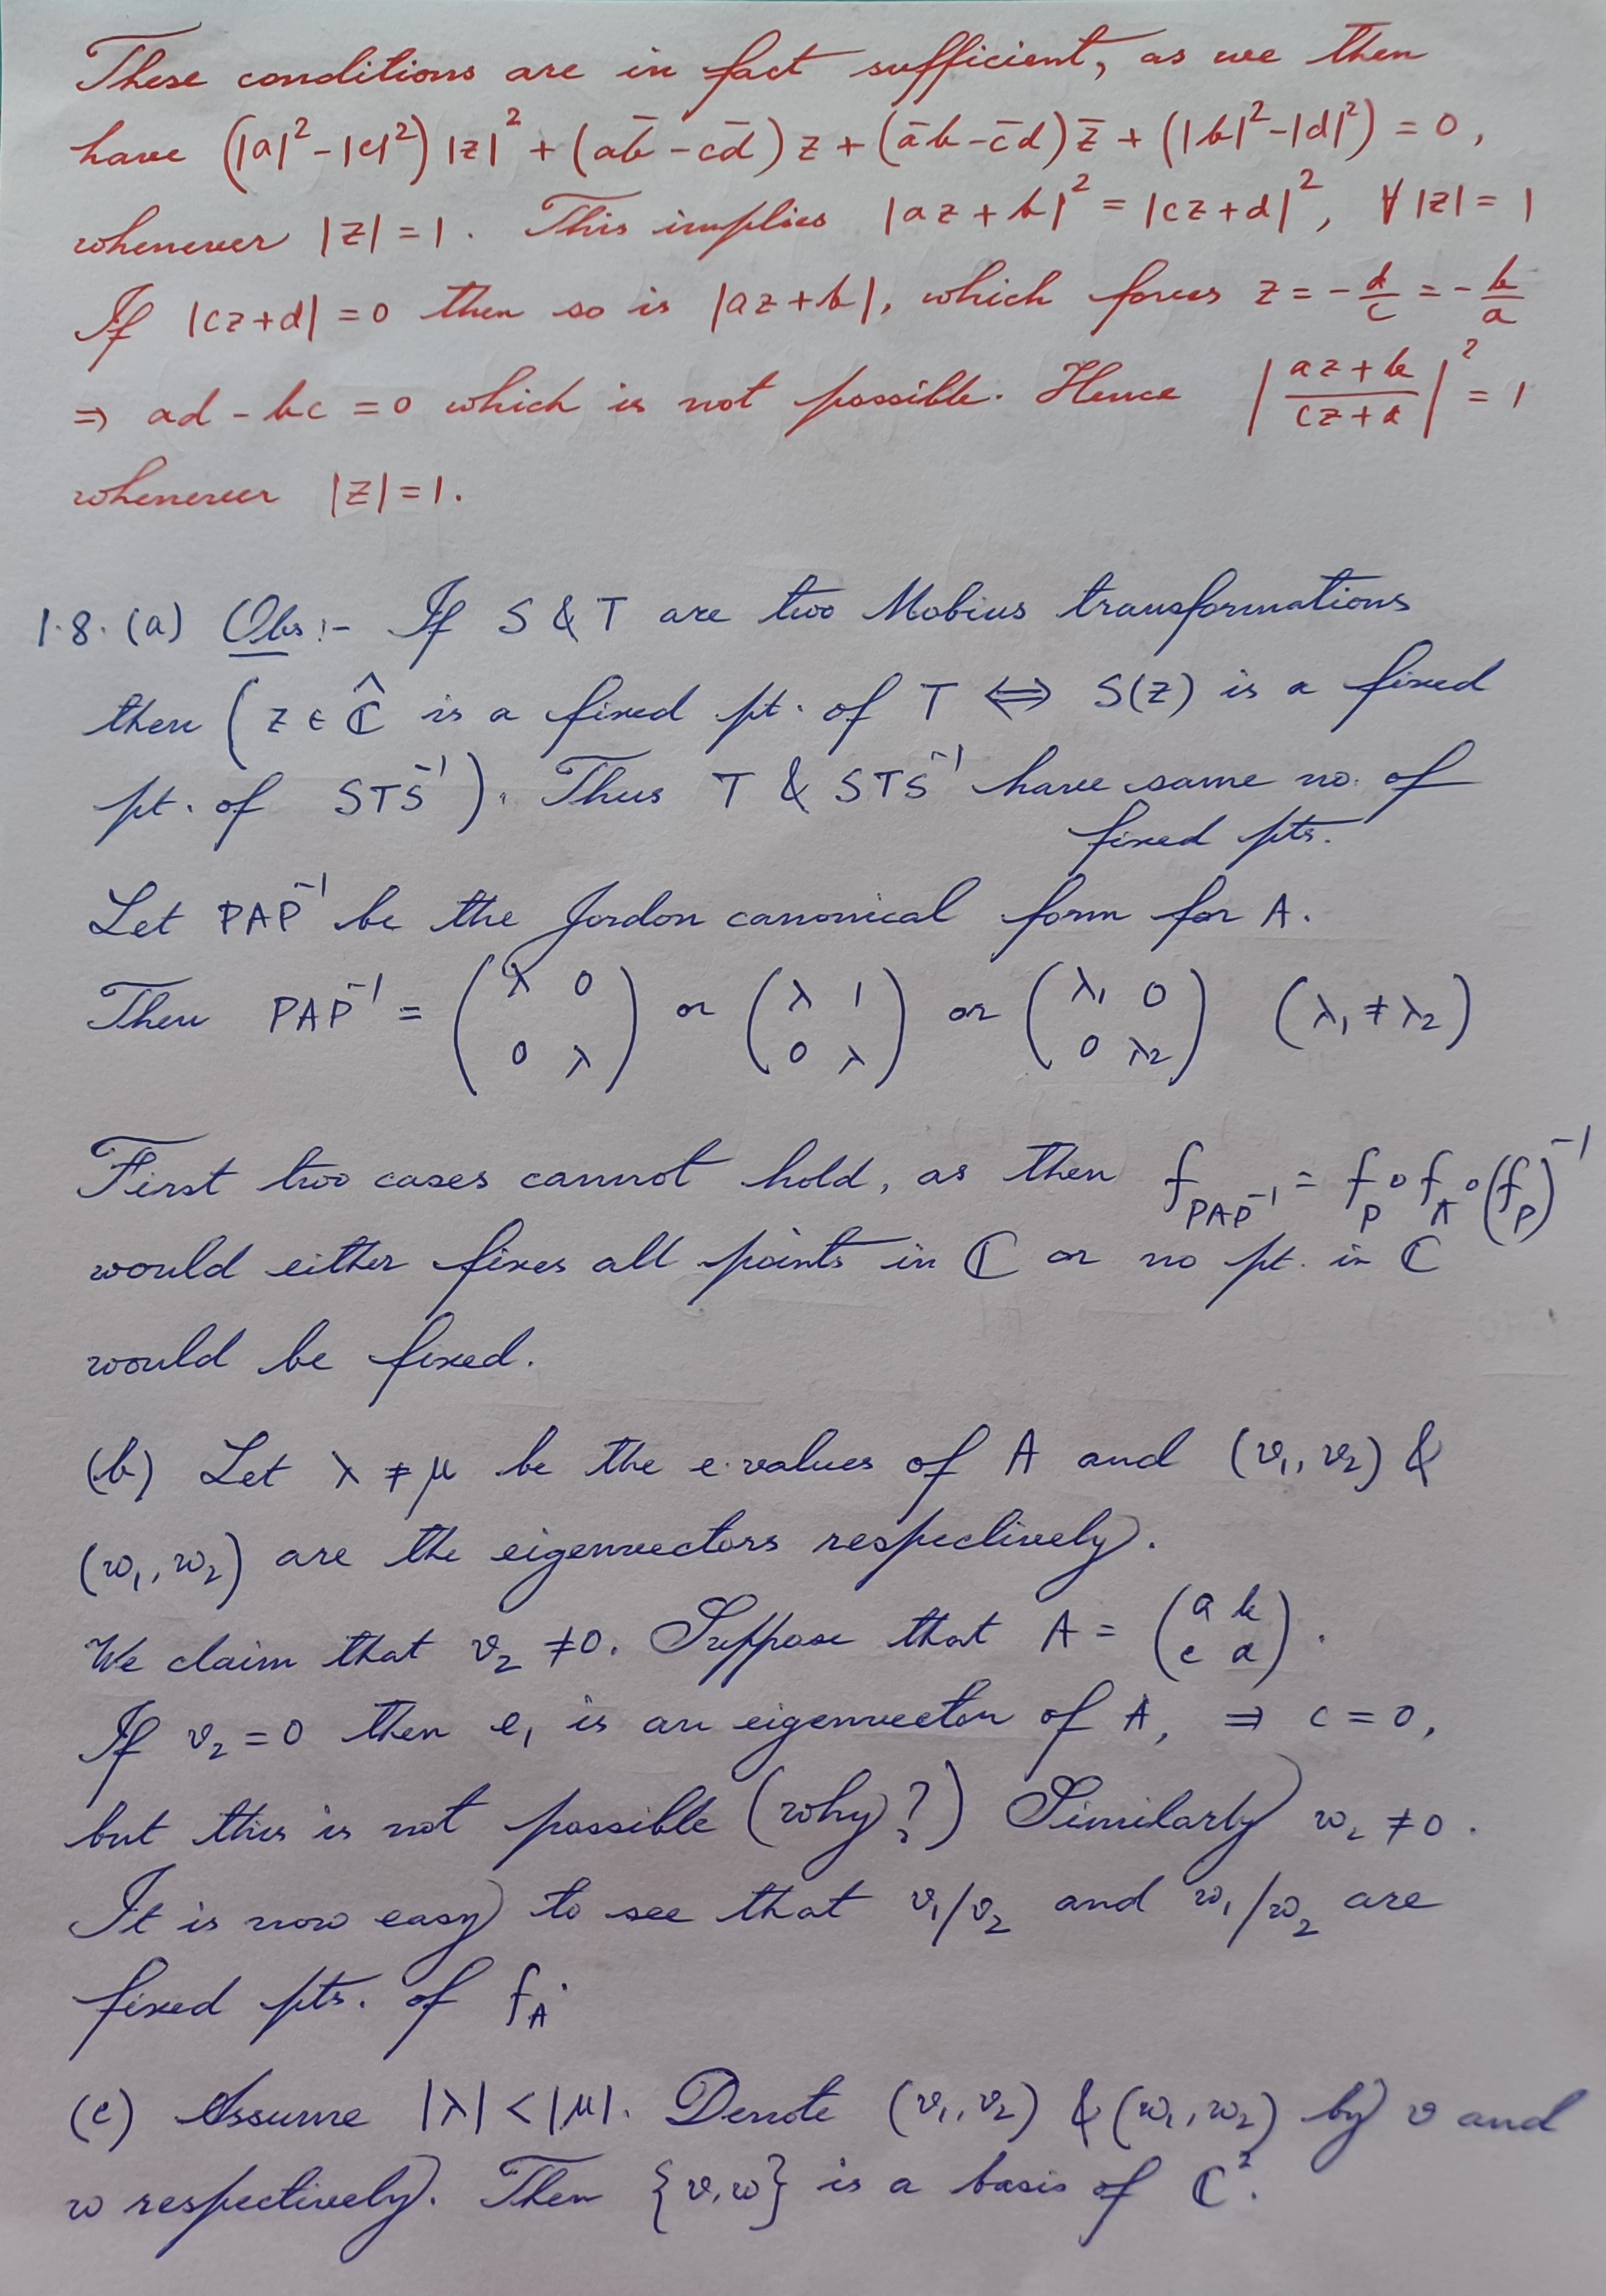 These conditions are in fact sufficient, as we then
have (|a|² - |c|²) |z|² + (ab̄ - cd̄) z + (āb - c̄d) z̄ + (|b|² - |d|²) = 0,
whenever |z| = 1. This implies |az + b|² = |cz + d|², ∀ |z| = 1
If |cz+d| = 0 then so is |az+b|, which forces z = -d/c = -b/a
⇒ ad - bc = 0 which is not possible. Hence |(az+b)/(cz+d)|² = 1
whenever |z| = 1.
1.8. (a) Obs:- If S & T are two Mobius transformations
then (z ∈ Ĉ is a fixed pt. of T ⟺ S(z) is a fixed
pt. of STS⁻¹). Thus T & STS⁻¹ have same no. of
fixed pts.
Let PAP⁻¹ be the Jordon canonical form for A.
Then PAP⁻¹ = (λ 0; 0 λ) or (λ 1; 0 λ) or (λ₁ 0; 0 λ₂) (λ₁ ≠ λ₂)
First two cases cannot hold, as then f_{PAP⁻¹} = f_P ∘ f_A ∘ (f_P)⁻¹
would either fixes all points in ℂ or no pt. in ℂ
would be fixed.
(b) Let λ ≠ μ be the e.values of A and (v₁, v₂) &
(w₁, w₂) are the eigenvectors respectively.
We claim that v₂ ≠ 0. Suppose that A = (a b; c d).
If v₂ = 0 then e₁ is an eigenvector of A, ⇒ c = 0,
but this is not possible (why?) Similarly w₂ ≠ 0.
It is now easy to see that v₁/v₂ and w₁/w₂ are
fixed pts. of f_A.
(c) Assume |λ| < |μ|. Denote (v₁, v₂) & (w₁, w₂) by v and
w respectively. Then {v, w} is a basis of ℂ².